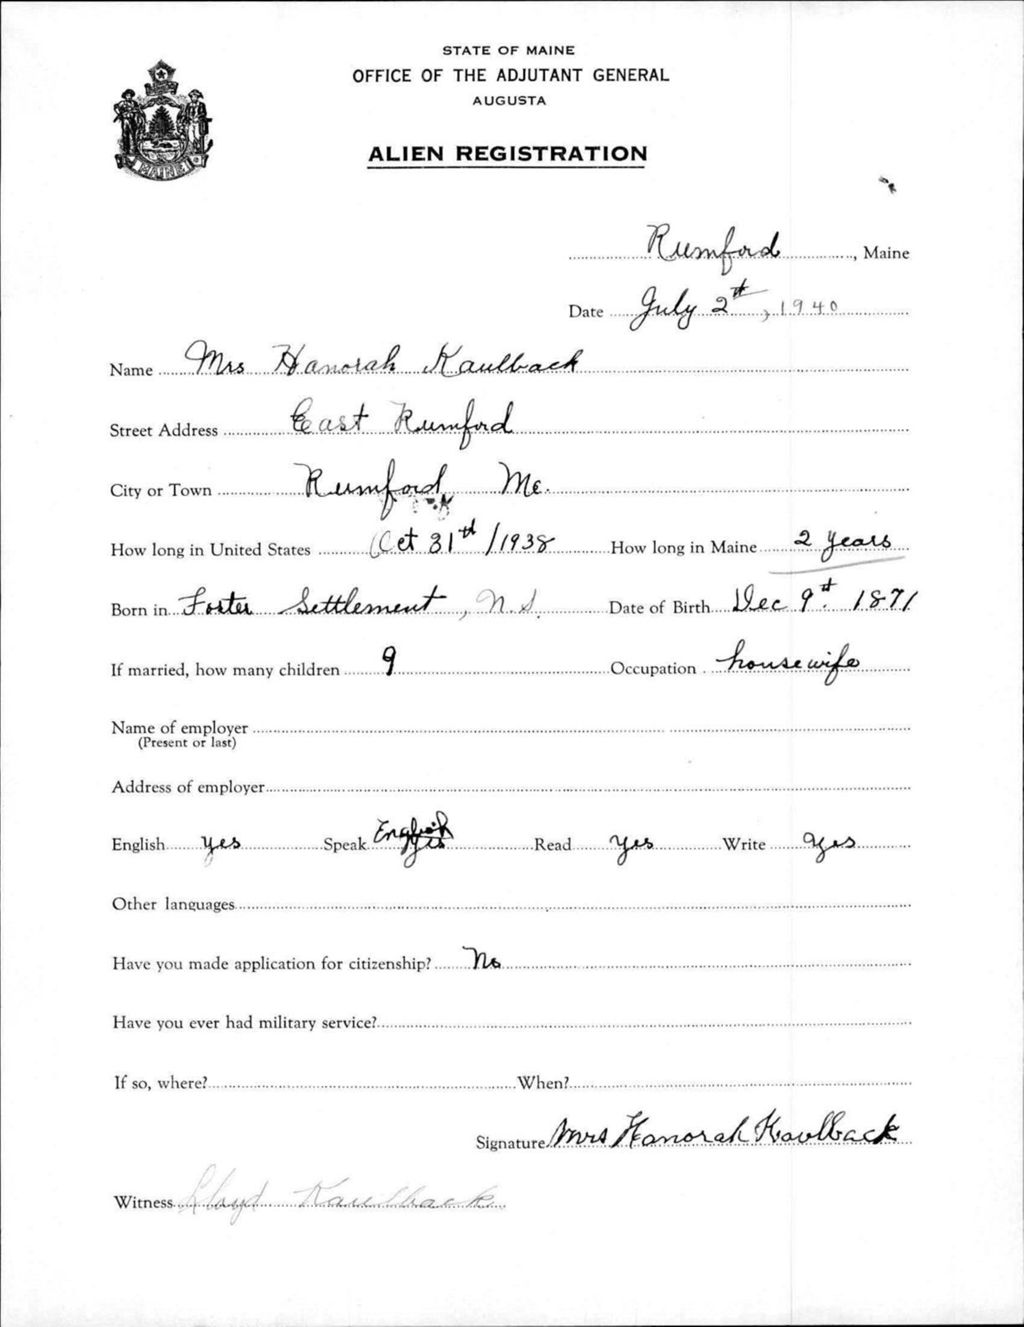 STATE OF MAINE
OFFICE OF THE ADJUTANT GENERAL
AUGUSTA
ALIEN REGISTRATION
MAINE
Rumford, Maine
Date July 2th, 1940
Name Mrs Hanorah Kaulback
Street Address East Rumford
City or Town Rumford, Me.
How long in United States Oct 31th/1938 How long in Maine 2 years
Born in Foster Settlement, N.S. Date of Birth Dec 9th 1871
If married, how many children 9 Occupation housewife
Name of employer
(Present or last)
Address of employer
English yes Speak English yes Read yes Write yes
Other languages
Have you made application for citizenship? No
Have you ever had military service?
If so, where? When?
Signature Mrs Hanorah Kaulback
Witness Lloyd Kaulback